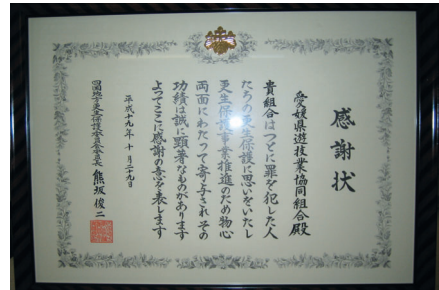 感謝状
愛媛県遊技業協同組合殿
貴組合はつとに罪を犯した人
たちの更生保護に思いをいたし
更生保護事業推進のため物心
両面にわたつて寄与されその
功績は誠に顕著なものがあります
よつてここに感謝の意を表します
平成十九年十月二十九日
四国地方更生保護委員会委員長 熊坂俊二